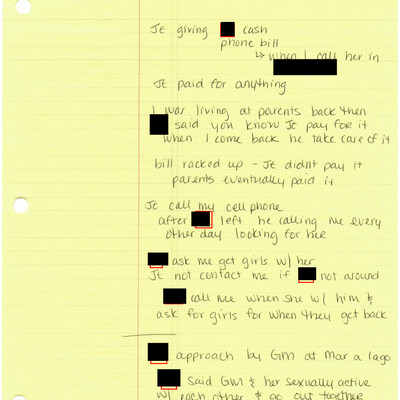 JE giving cash
phone bill
↳ when I call her in
JE paid for anything
I was living at parents back then
said you know JE pay for it
when I come back he take care of it
bill racked up - JE didnt pay it
parents eventually paid it
JE call my cell phone
after left he calling me every
other day looking for her
ask me get girls w/ her
JE not contact me if not around
call me when she w/ him &
ask for girls for when they get back
approach by GM at Mar a lago
said GM & her sexually active
w/ each other & go out together